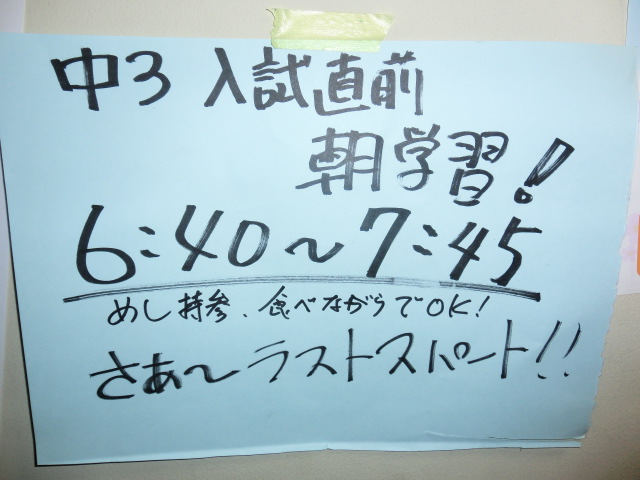 中3 入試直前
朝学習!
6:40～7:45
めし持参、食べながらでOK!
さあ～ラストスパート!!